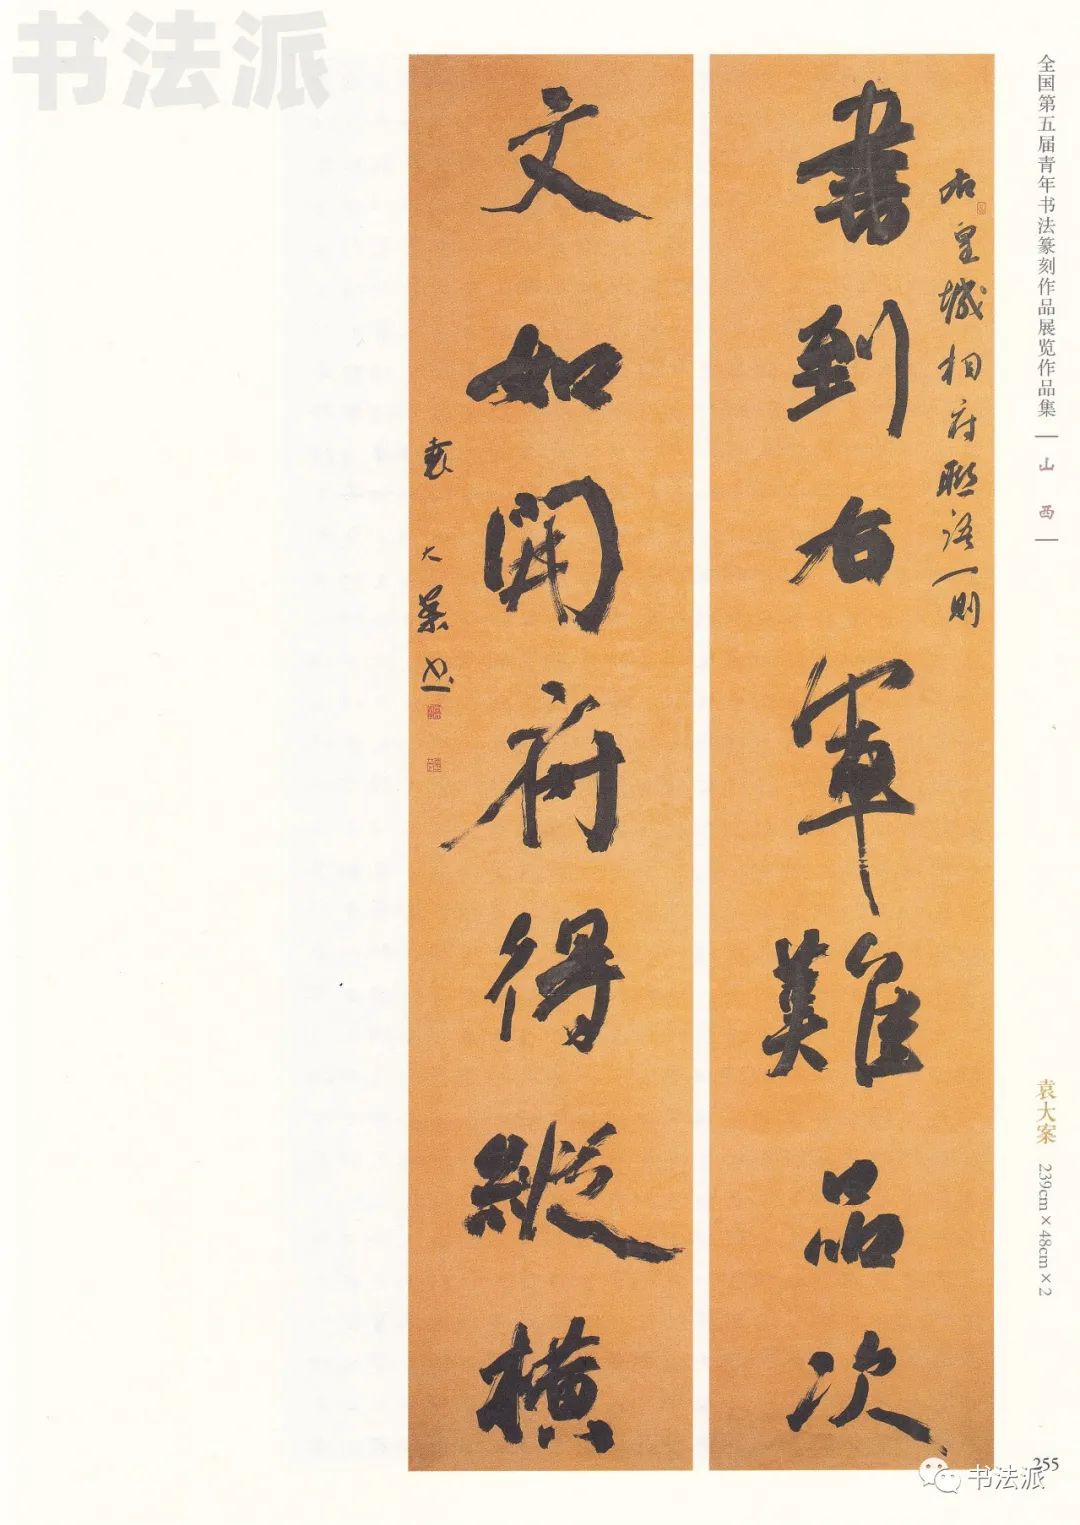 书法派
全国第五届青年书法篆刻作品展览作品集
山西
書到右軍難品次
右皇城相府聯語一則
文如開府得縱橫
袁大案书
袁大案 239cm×48cm×2
255
书法派